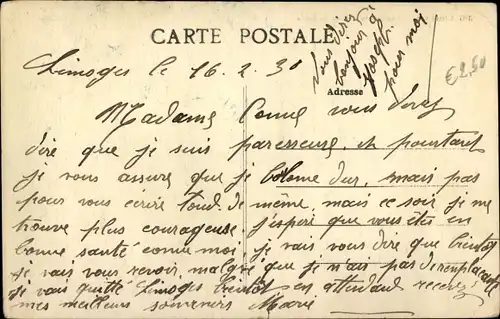 CARTE POSTALE
Adresse
Vous direz
bonjour à
Joseph
pour moi
€2,50
Limoges le 16.2.30
Madame, vous devez
dire que je suis paresseuse, et pourtant
je vous assure que je dur, mais pas
pour vous écrire tout de même, mais ce soir je me
trouve plus courageuse. j'espère que vous êtes en
bonne santé comme moi je vais vous dire que bientôt
je vais vous revoir, malgré que je n'ai pas de remplaçante
je vais quitté Limoges bientôt en attendant recevez
mes meilleurs souvenirs Marie